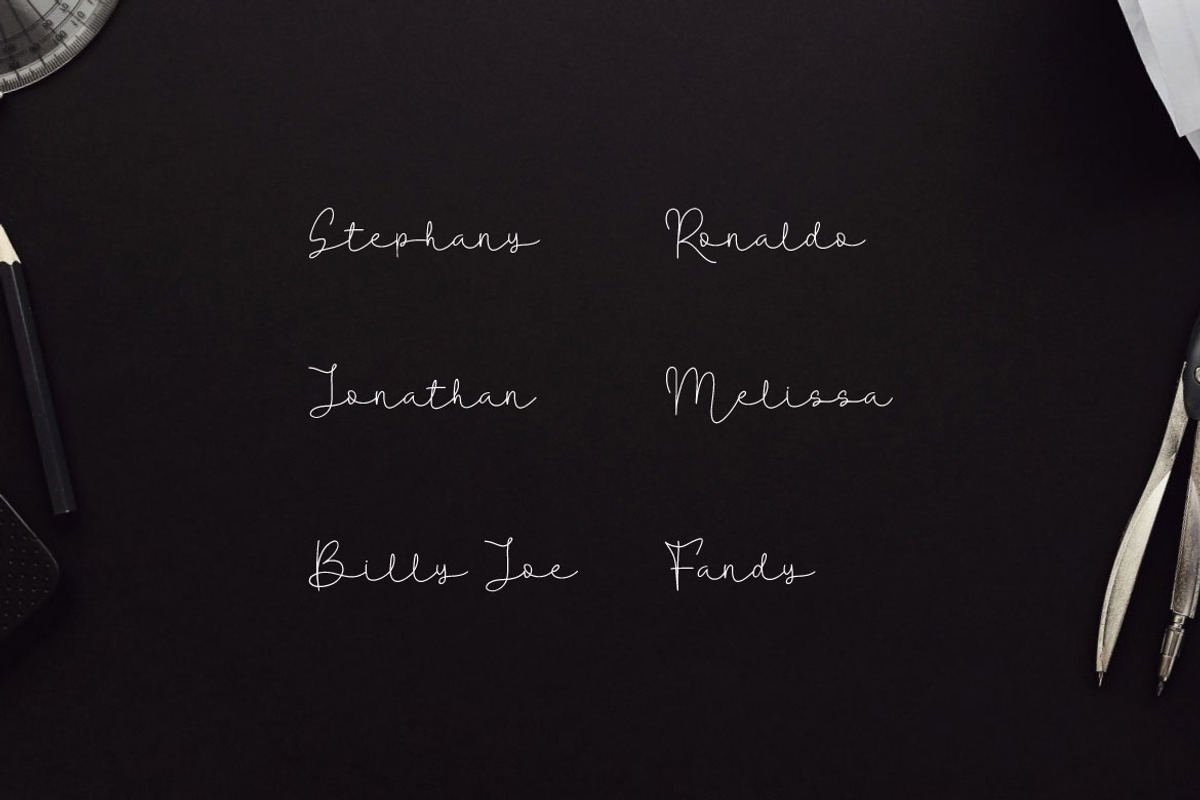 Stephany Ronaldo
Jonathan Melissa
Billy Joe Fandy